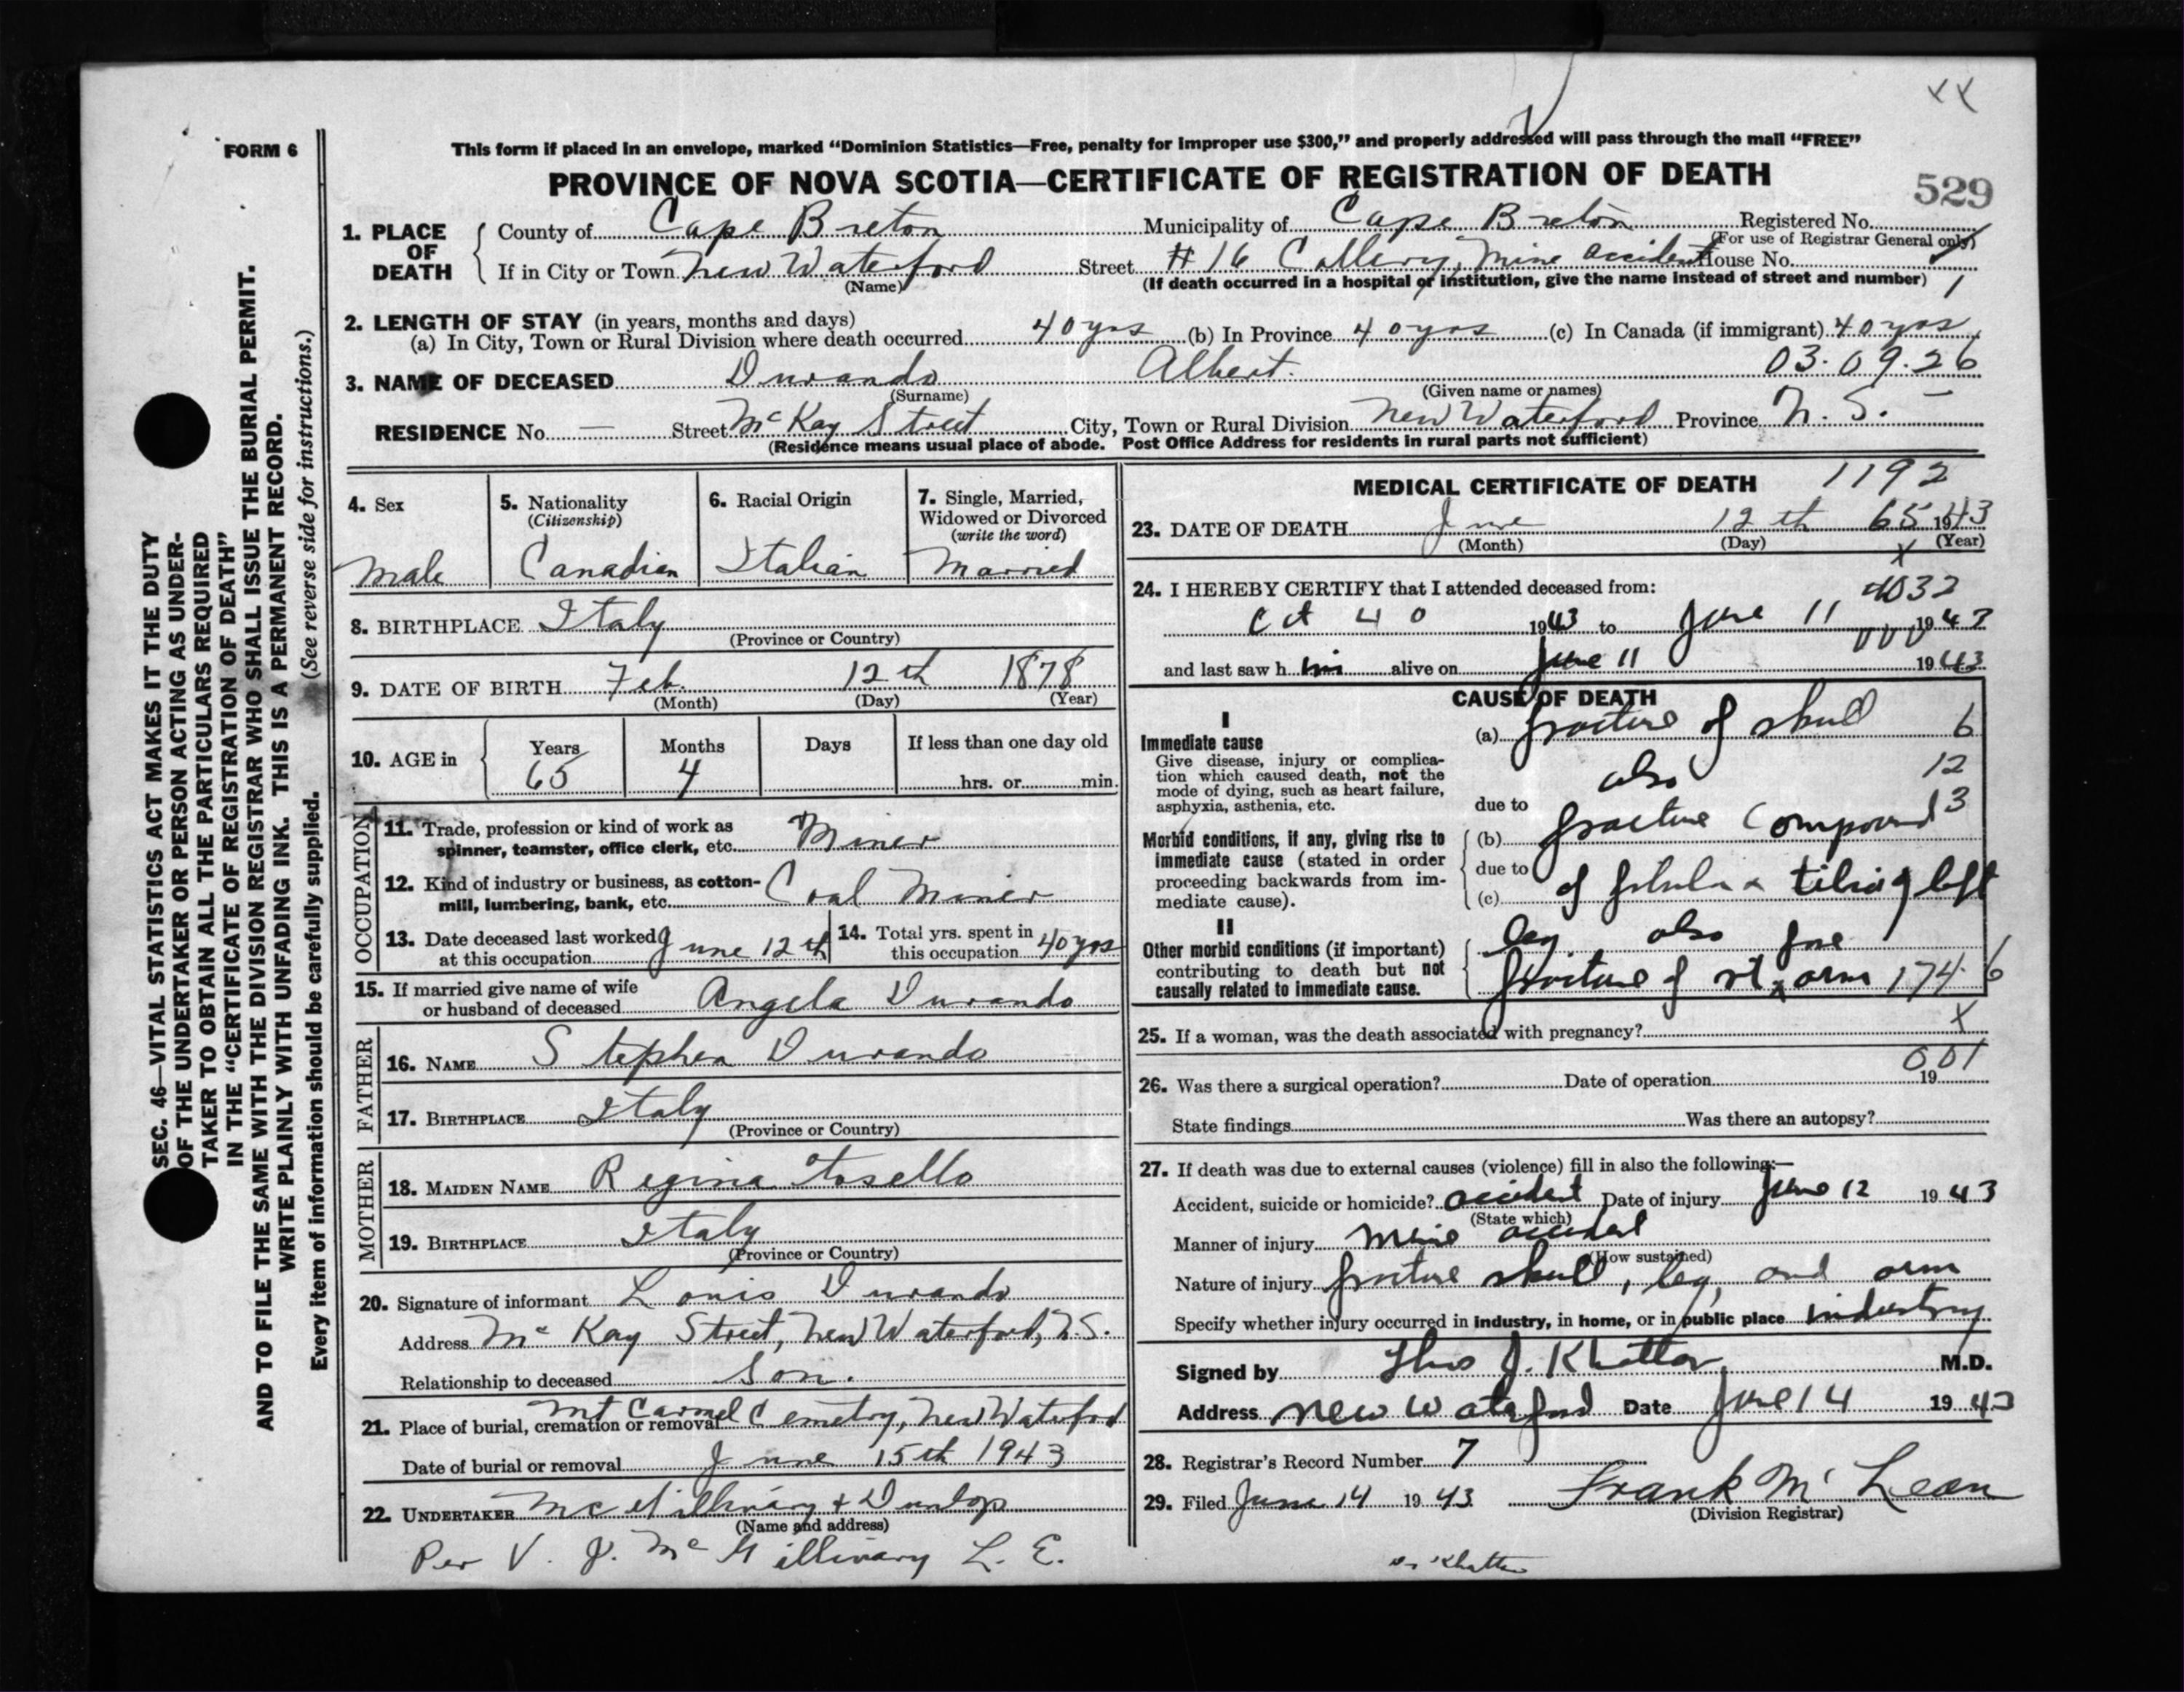 FORM 6
XX
This form if placed in an envelope, marked “Dominion Statistics—Free, penalty for improper use $300,” and properly addressed will pass through the mail “FREE”
PROVINCE OF NOVA SCOTIA—CERTIFICATE OF REGISTRATION OF DEATH
529
1. PLACE OF DEATH
County of Cape Breton Municipality of Cape Breton Registered No.
(For use of Registrar General only)
If in City or Town New Waterford Street # 16 Collery, Mine accident House No.
(Name) (If death occurred in a hospital or institution, give the name instead of street and number) 1
2. LENGTH OF STAY (in years, months and days)
(a) In City, Town or Rural Division where death occurred 40 yrs (b) In Province 40 yrs (c) In Canada (if immigrant) 40 yrs
3. NAME OF DECEASED Durando Albert. 03.09.26
(Surname) (Given name or names)
RESIDENCE No. — Street McKay Street City, Town or Rural Division New Waterford Province N. S.
(Residence means usual place of abode. Post Office Address for residents in rural parts not sufficient)
4. Sex Male
5. Nationality (Citizenship) Canadian
6. Racial Origin Italian
7. Single, Married, Widowed or Divorced (write the word) Married
8. BIRTHPLACE Italy
(Province or Country)
9. DATE OF BIRTH Feb. 12th 1878
(Month) (Day) (Year)
10. AGE in Years 65 Months 4 Days If less than one day old
hrs. or min.
OCCUPATION
11. Trade, profession or kind of work as
spinner, teamster, office clerk, etc. Miner
12. Kind of industry or business, as cotton-
mill, lumbering, bank, etc. Coal Miner
13. Date deceased last worked
at this occupation June 12th
14. Total yrs. spent in
this occupation 40 yrs
15. If married give name of wife
or husband of deceased Angela Durando
FATHER
16. NAME Stephen Durando
17. BIRTHPLACE Italy
(Province or Country)
MOTHER
18. MAIDEN NAME Regina Tosello
19. BIRTHPLACE Italy
(Province or Country)
20. Signature of informant Louis Durando
Address McKay Street, New Waterford, N.S.
Relationship to deceased Son.
21. Place of burial, cremation or removal Mt Carmel Cemetry, New Waterford
Date of burial or removal June 15th 1943
22. UNDERTAKER McGillivary & Dunlop
(Name and address)
Per V. J. McGillivary L. E.
MEDICAL CERTIFICATE OF DEATH 1192
23. DATE OF DEATH June 12th 65 1943
(Month) (Day) (Year)
X
24. I HEREBY CERTIFY that I attended deceased from:
4032
1943 to June 11 1943
and last saw h im alive on June 11 1943
CAUSE OF DEATH
I
Immediate cause
Give disease, injury or complica-
tion which caused death, not the
mode of dying, such as heart failure,
asphyxia, asthenia, etc.
(a) fracture of skull 6
also 12
due to
Morbid conditions, if any, giving rise to
immediate cause (stated in order
proceeding backwards from im-
mediate cause).
(b) fracture Compound 3
due to
(c) of fibula & tibia of left
II
Other morbid conditions (if important)
contributing to death but not
causally related to immediate cause.
leg also fore
fracture of rt arm 174.6
25. If a woman, was the death associated with pregnancy? X
001
26. Was there a surgical operation? Date of operation 19
State findings Was there an autopsy?
27. If death was due to external causes (violence) fill in also the following:—
Accident, suicide or homicide? accident Date of injury June 12 1943
(State which)
Manner of injury Mine accident
(How sustained)
Nature of injury fracture skull, leg, and arm
Specify whether injury occurred in industry, in home, or in public place industry
Signed by Thos J. Khattar M.D.
Address New Waterford Date June 14 1943
28. Registrar's Record Number 7
29. Filed June 14 1943 Frank McLean
(Division Registrar)
Dr Khattar
SEC. 46—VITAL STATISTICS ACT MAKES IT THE DUTY
OF THE UNDERTAKER OR PERSON ACTING AS UNDER-
TAKER TO OBTAIN ALL THE PARTICULARS REQUIRED
IN THE “CERTIFICATE OF REGISTRATION OF DEATH”
AND TO FILE THE SAME WITH THE DIVISION REGISTRAR WHO SHALL ISSUE THE BURIAL PERMIT.
WRITE PLAINLY WITH UNFADING INK. THIS IS A PERMANENT RECORD.
Every item of information should be carefully supplied. (See reverse side for instructions.)